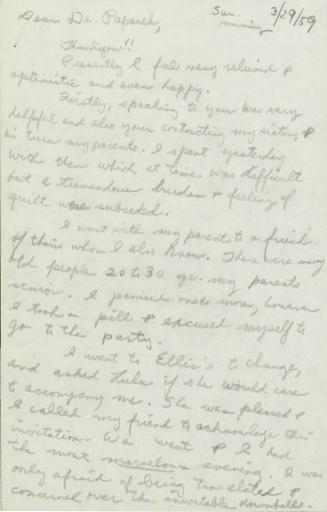 Sun. morning 3/29/59
Dear Dr. Papanek,
Thankyou!!
Presently I feel very relieved &
optimistic and even happy.
Firstly, speaking to you was very
helpful and also your contacting my sister, &
in turn my parents. I spent yesterday
with them which at times was difficult
but a tremendous burden & feeling of
guilt were subsided.
I went with my parent to a friend
of theirs whom I also know. There were many
old people 20 to 30 yr. my parents
senior. I panicked once more, however
I took a pill & excused myself to
go to the party.
I went to Ellis's to change,
and asked Lula if she would care
to accompany me. She was pleased &
I called my friend to acknowledge the
invitation. We went & I had
the most marvelous evening. I was
only afraid of being too elated &
concerned over the inevitable downfall.